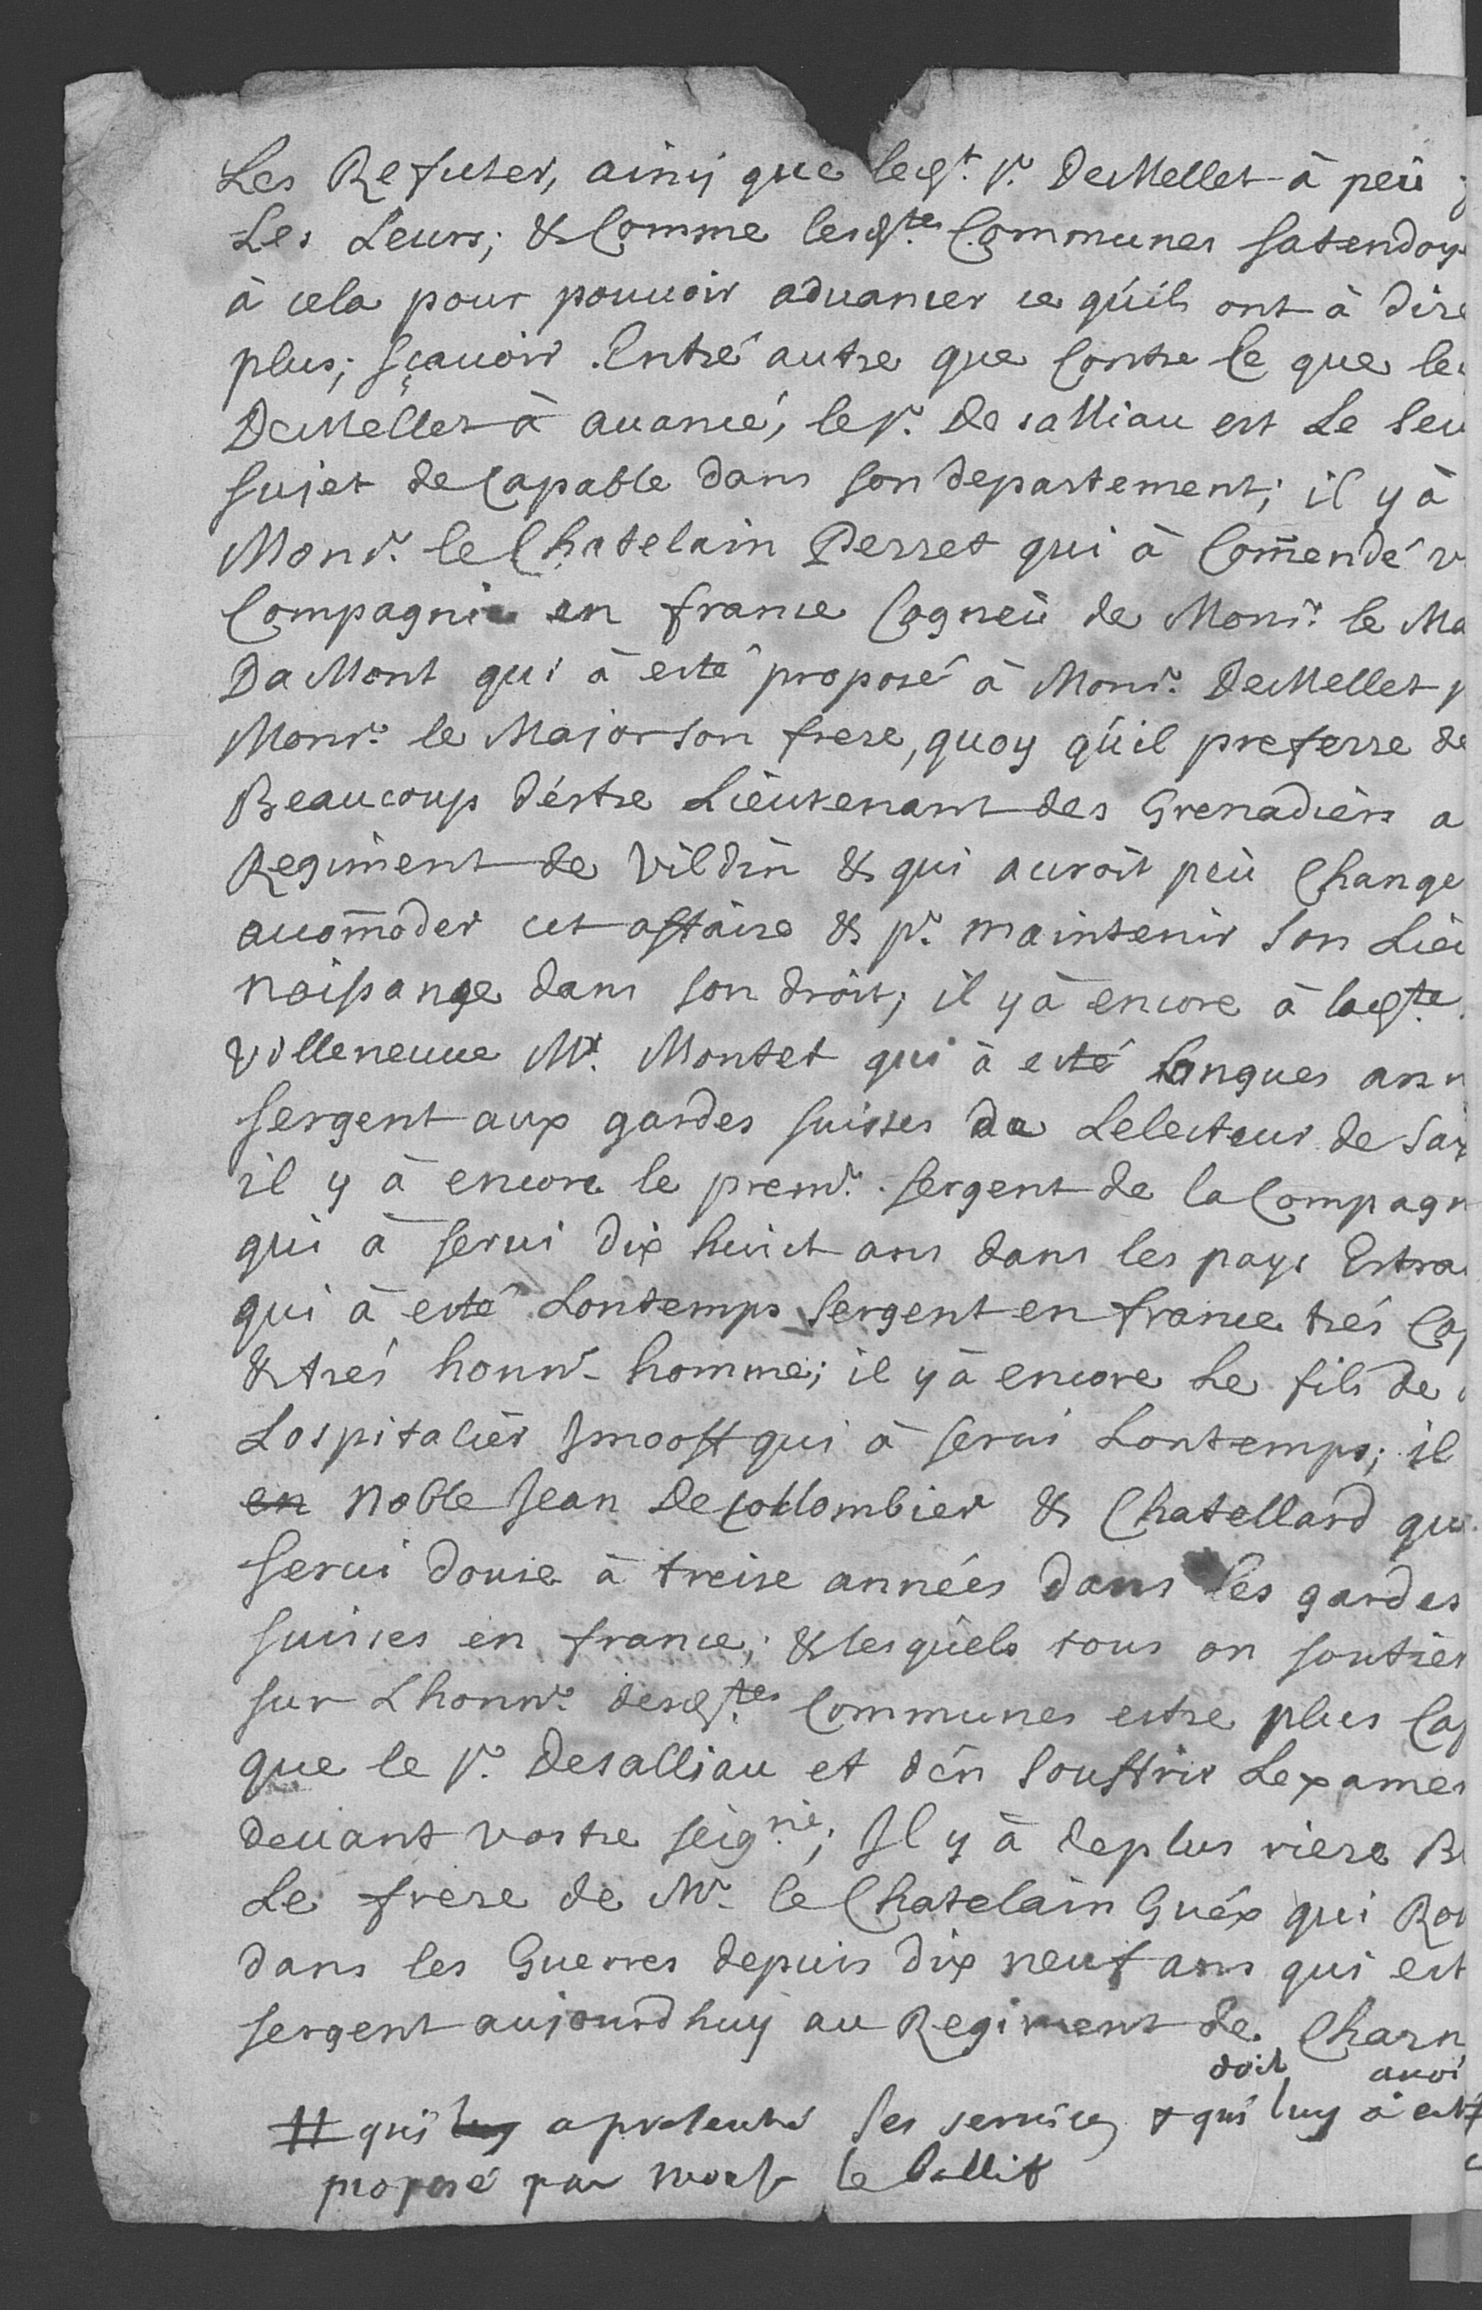 Les Refuter, ainsy que led.t Sr. DeMellet à peü
Les Leurs; & Comme lesd.tes Communes satendoy
à cela pour pouuoir aduancer ce qúils ont à dire
plus; sçauoir Entré autre que Contre Ce que le
DeMellet à auancé, le Sr. Desalliau est Le seu
sujet de Capable dans son departement; il y à
Monsr. le Chatelain Perret qui à Com̄endé v
Compagnie en france Cogneü de Monsr. le Ma
DaMont qui à esté proposé à Monsr. DeMellet p
Monsr. le Major son frere, quoy qúil preferre de
Beaucoup déstre Lieutenant des Grenadiers a
Regiment de Vildin & qui auroit peü Change
accom̄oder cet affaire & pr. maintenir son Lieu
naissance dans son droit; il yà encore à lad.te
Villeneuue Mr. Montet qui à esté Longues ann
sergent aux gardes suisses de Lelecteur de Sax
il y à encore le premr. sergent de la Compagn
qui à serui dix huict ans dans les pays Estra
qui à esté Lontemps sergent en france trés Cap
& trés honnr. homme; il yà encore Le fils de
Lospitalier Jmooff qui à serui Lontemps; il
en Noble Jean DeCollombier & Chatellard qui
serui douse à treise années dans les gardes
suisses en france; & lesqüels tous on soutien
sur Lhonnr. desd.tes Communes estre plus Cap
que le Sr. Desalliau et dén souffrir Lexamen
deuant vostre seig.rie; Il y à deplus riere B
Le frere de Mr. le Chatelain Guéx qui Rou
dans les Guerres depuis dix neuf ans qui est
sergent aujourdhuy au Regiment de Charn
doit auoi
# qui luy a presenté ses services & qui luy à esté
proposé par le Ballif